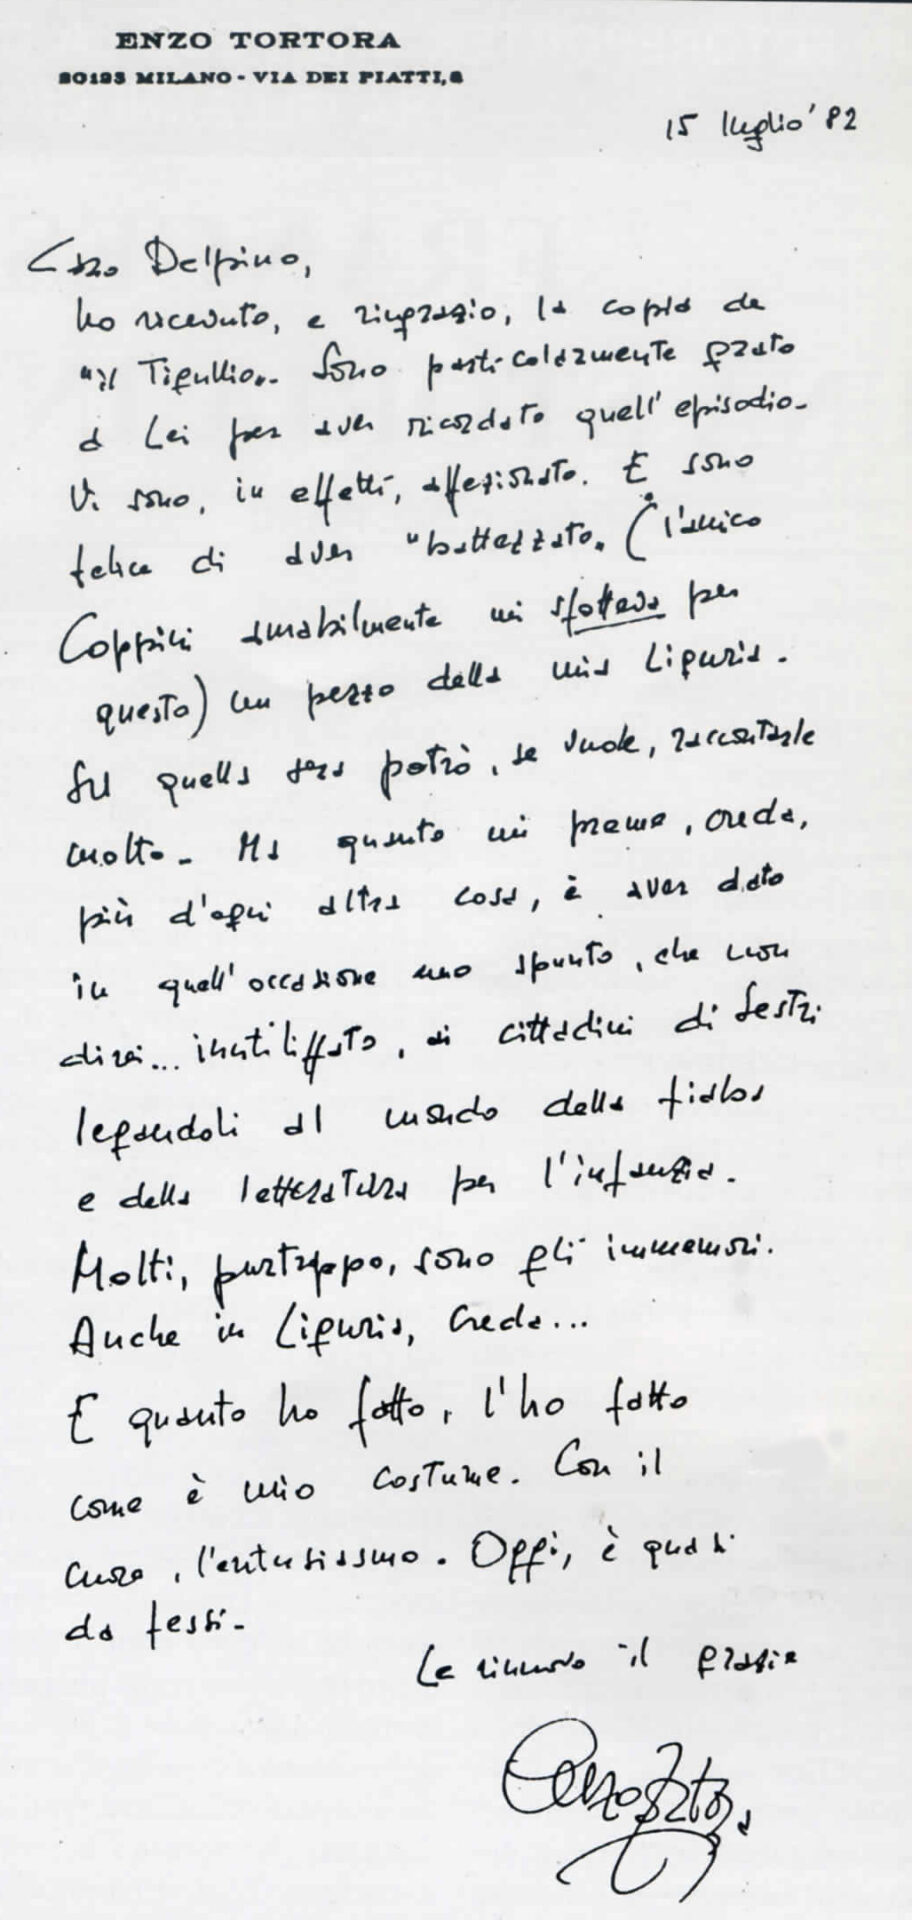 ENZO TORTORA
20123 MILANO - VIA DEI PIATTI, 8
15 luglio '82
Caro Delpino,
ho ricevuto, e ringrazio, la copia de
"il Tigullio". Sono particolarmente grato
a Lei per aver ricordato quell'episodio.
Vi sono, in effetti, affezionato. E sono
felice di aver "battezzato" (l'amico
Coppini amabilmente mi sfotteva per
questo) un pezzo della mia Liguria.
Su quella sera potrò, se vuole, raccontarle
molto. Ma quanto mi preme, creda,
più d'ogni altra cosa, è aver dato
in quell'occasione uno spunto, che non
direi... inutilizzato, ai cittadini di Sestri
legandoli al mondo della fiaba
e della letteratura per l'infanzia.
Molti, purtroppo, sono gli immemori.
Anche in Liguria, creda...
E quanto ho fatto, l'ho fatto
come è mio costume. Con il
cuore, l'entusiasmo. Oggi, è quasi
da fessi.
Le rinnovo il grazie
Enzo Tortora